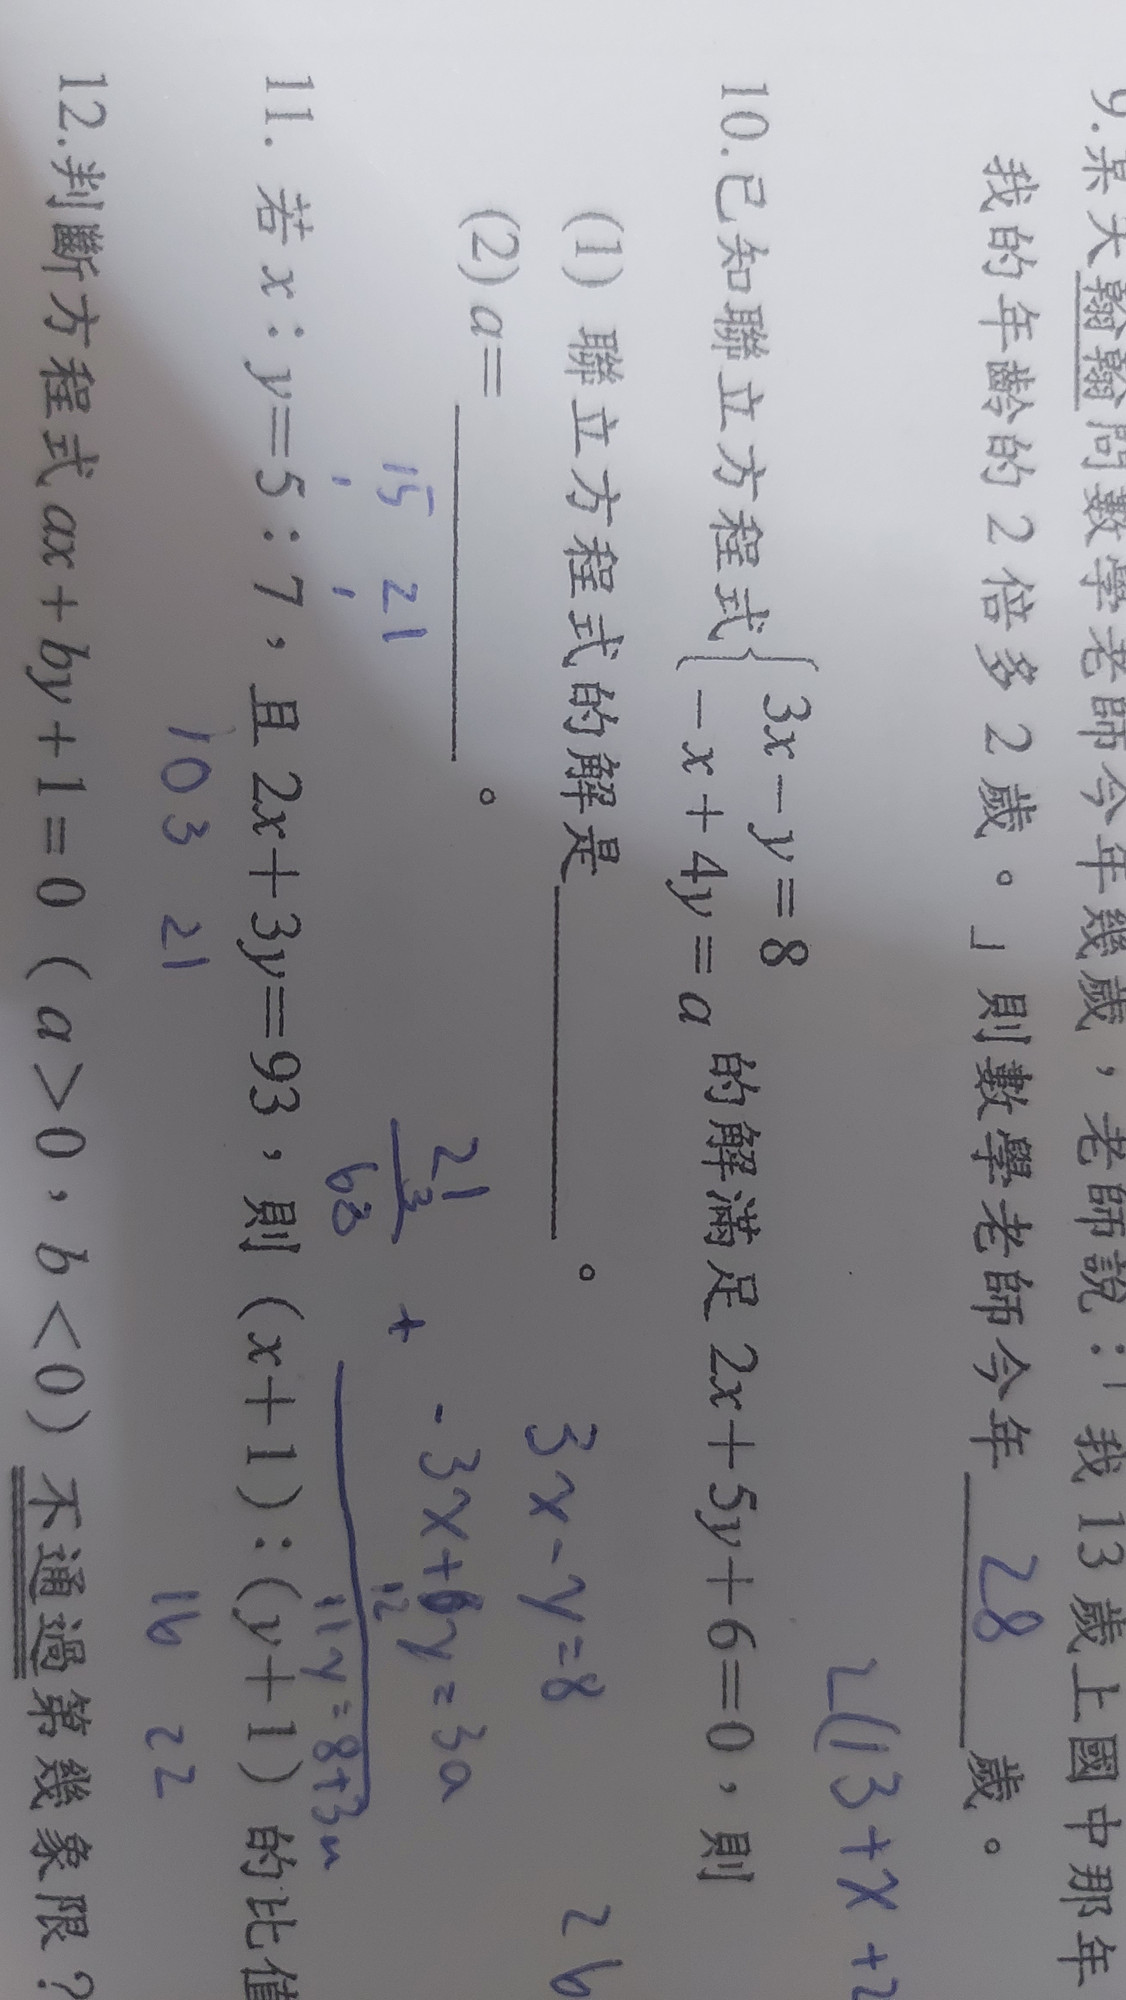 9.某天翰翰問數學老師今年幾歲，老師說：「我 13 歲上國中那年
我的年齡的 2 倍多 2 歲。」則數學老師今年 28 歲。
2(13+x+2
10.已知聯立方程式{3x－y＝8
－x＋4y＝a 的解滿足 2x＋5y＋6＝0，則
(1) 聯立方程式的解是＿＿＿＿＿。
3x-y=8
26
(2) a＝＿＿＿＿＿。
21
3
63
+
-3x+ y=3a
12
11y=8+3a
15 21
11. 若 x：y＝5：7，且 2x＋3y＝93，則（x＋1）：（y＋1）的比值
103 21
16 22
12.判斷方程式 ax＋by＋1＝0（a＞0，b＜0）不通過第幾象限？